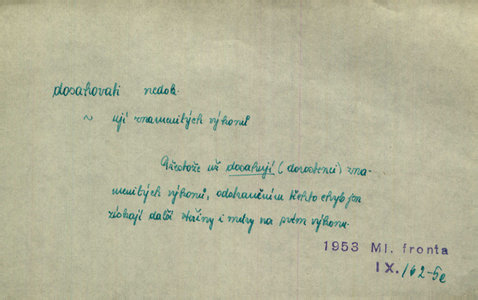 dosahovati nedok.
~ ují znamenitých výkonů
Přestože už dosahují (dorostenci) zna-
menitých výkonů, odstraněním těchto chyb jen
získají další vteřiny i metry na svém výkonu.
1953 Ml. fronta
IX./162-5c